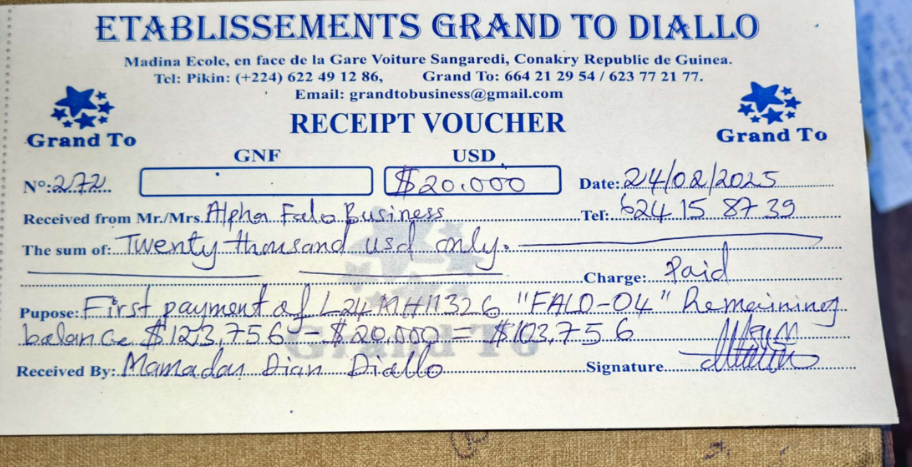 ETABLISSEMENTS GRAND TO DIALLO
Madina Ecole, en face de la Gare Voiture Sangaredi, Conakry Republic de Guinea.
Tel: Pikin: (+224) 622 49 12 86, Grand To: 664 21 29 54 / 623 77 21 77.
Email: grandtobusiness@gmail.com
Grand To
RECEIPT VOUCHER
Grand To
GNF USD
N°: 272 $20.000 Date: 24/02/2025
Received from Mr./Mrs. Alpha Falo Business Tel: 624 15 87 39
The sum of: Twenty thousand usd only.
Charge: Paid
Pupose: First payment of L24MH11326 "FALO-04" Remaining
balance $123,756 - $20,000 = $103,756
Grand To
Received By: Mamadou Dian Diallo Signature